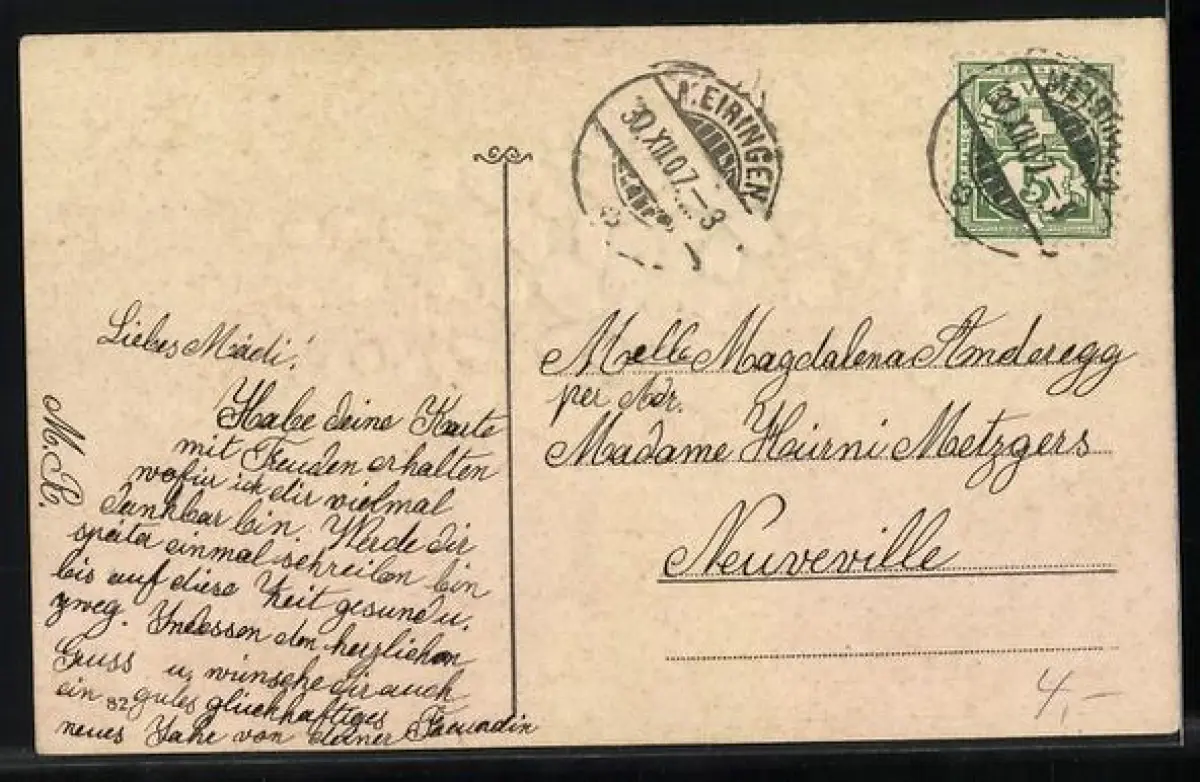 MEIRINGEN
30.XII.07.–3
MEIRINGEN
30.XII.07.–
5
Liebes Mädi!
Habe deine Karte
mit Freuden erhalten
wofür ich dir vielmal
dankbar bin. Werde dir
später einmal schreiben bin
bis auf diese Zeit gesund u.
zweg. Indessen den herzlichen
Gruss u, wünsche dir auch
ein gutes glückhaftiges
neues Jahr von deiner Freundin
M. B.
82
Melle Magdalena Anderegg
per Adr.
Madame Hürni Metzgers
Neuveville
4,–